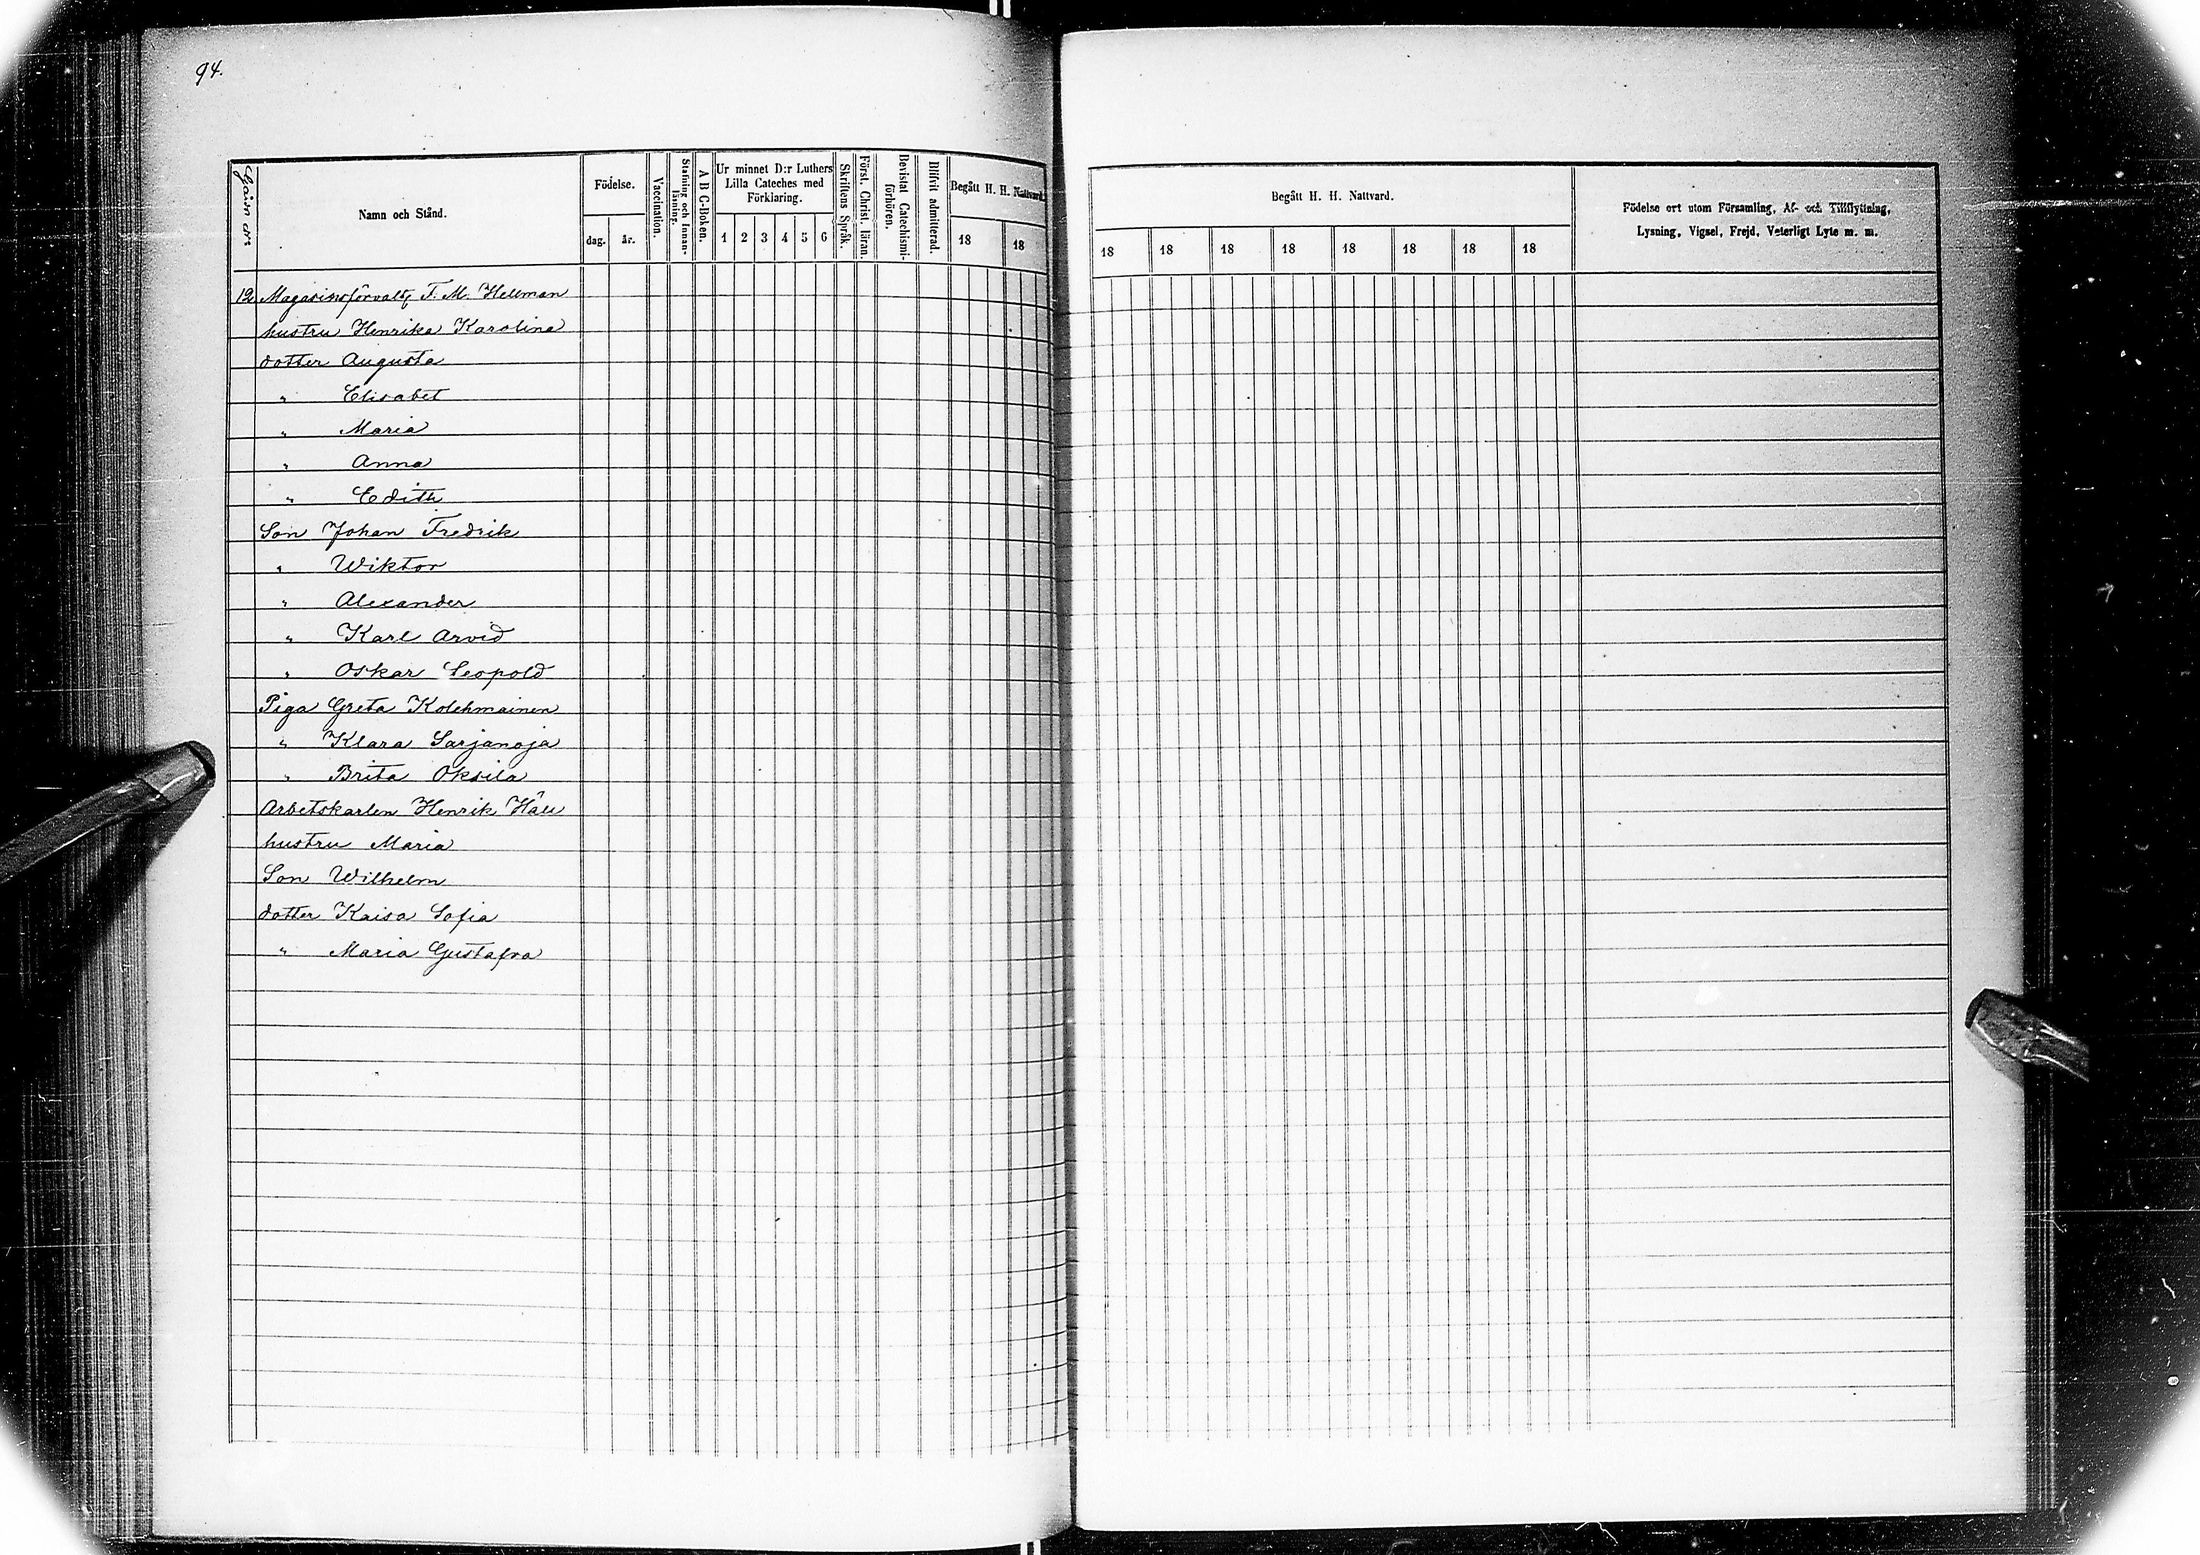 94.
Gårds №
Namn och Stånd.
Födelse.
dag. år.
Vaccination.
Stafning och Innan-läsning.
A B C-Boken.
Ur minnet D:r Luthers
Lilla Cateches med
Förklaring.
1 2 3 4 5 6
Skriftens Språk.
Förest. Christ. läran.
Bevistat Catechismi-förhören.
Blifvit admitterad.
Begått H. H. Nattvard.
18 18
Begått H. H. Nattvard.
18 18 18 18 18 18 18 18
Födelse ort utom Församling, Af- och Tillflyttning,
Lysning, Vigsel, Frejd, Veterligt Lyte m. m.
12 Magasinsförvalt. F. M. Hellman
hustru Henrika Karolina
dotter Augusta
" Elisabet
" Maria
" Anna
" Edith
Son Johan Fredrik
" Wiktor
" Alexander
" Karl Arvid
" Oskar Leopold
Piga Greta Kolehmainen
" Klara Sarjanoja
" Brita Oksila
Arbetskarlen Henrik
hustru Maria
Son Wilhelm
dotter Kaisa Sofia
" Maria Gustafva